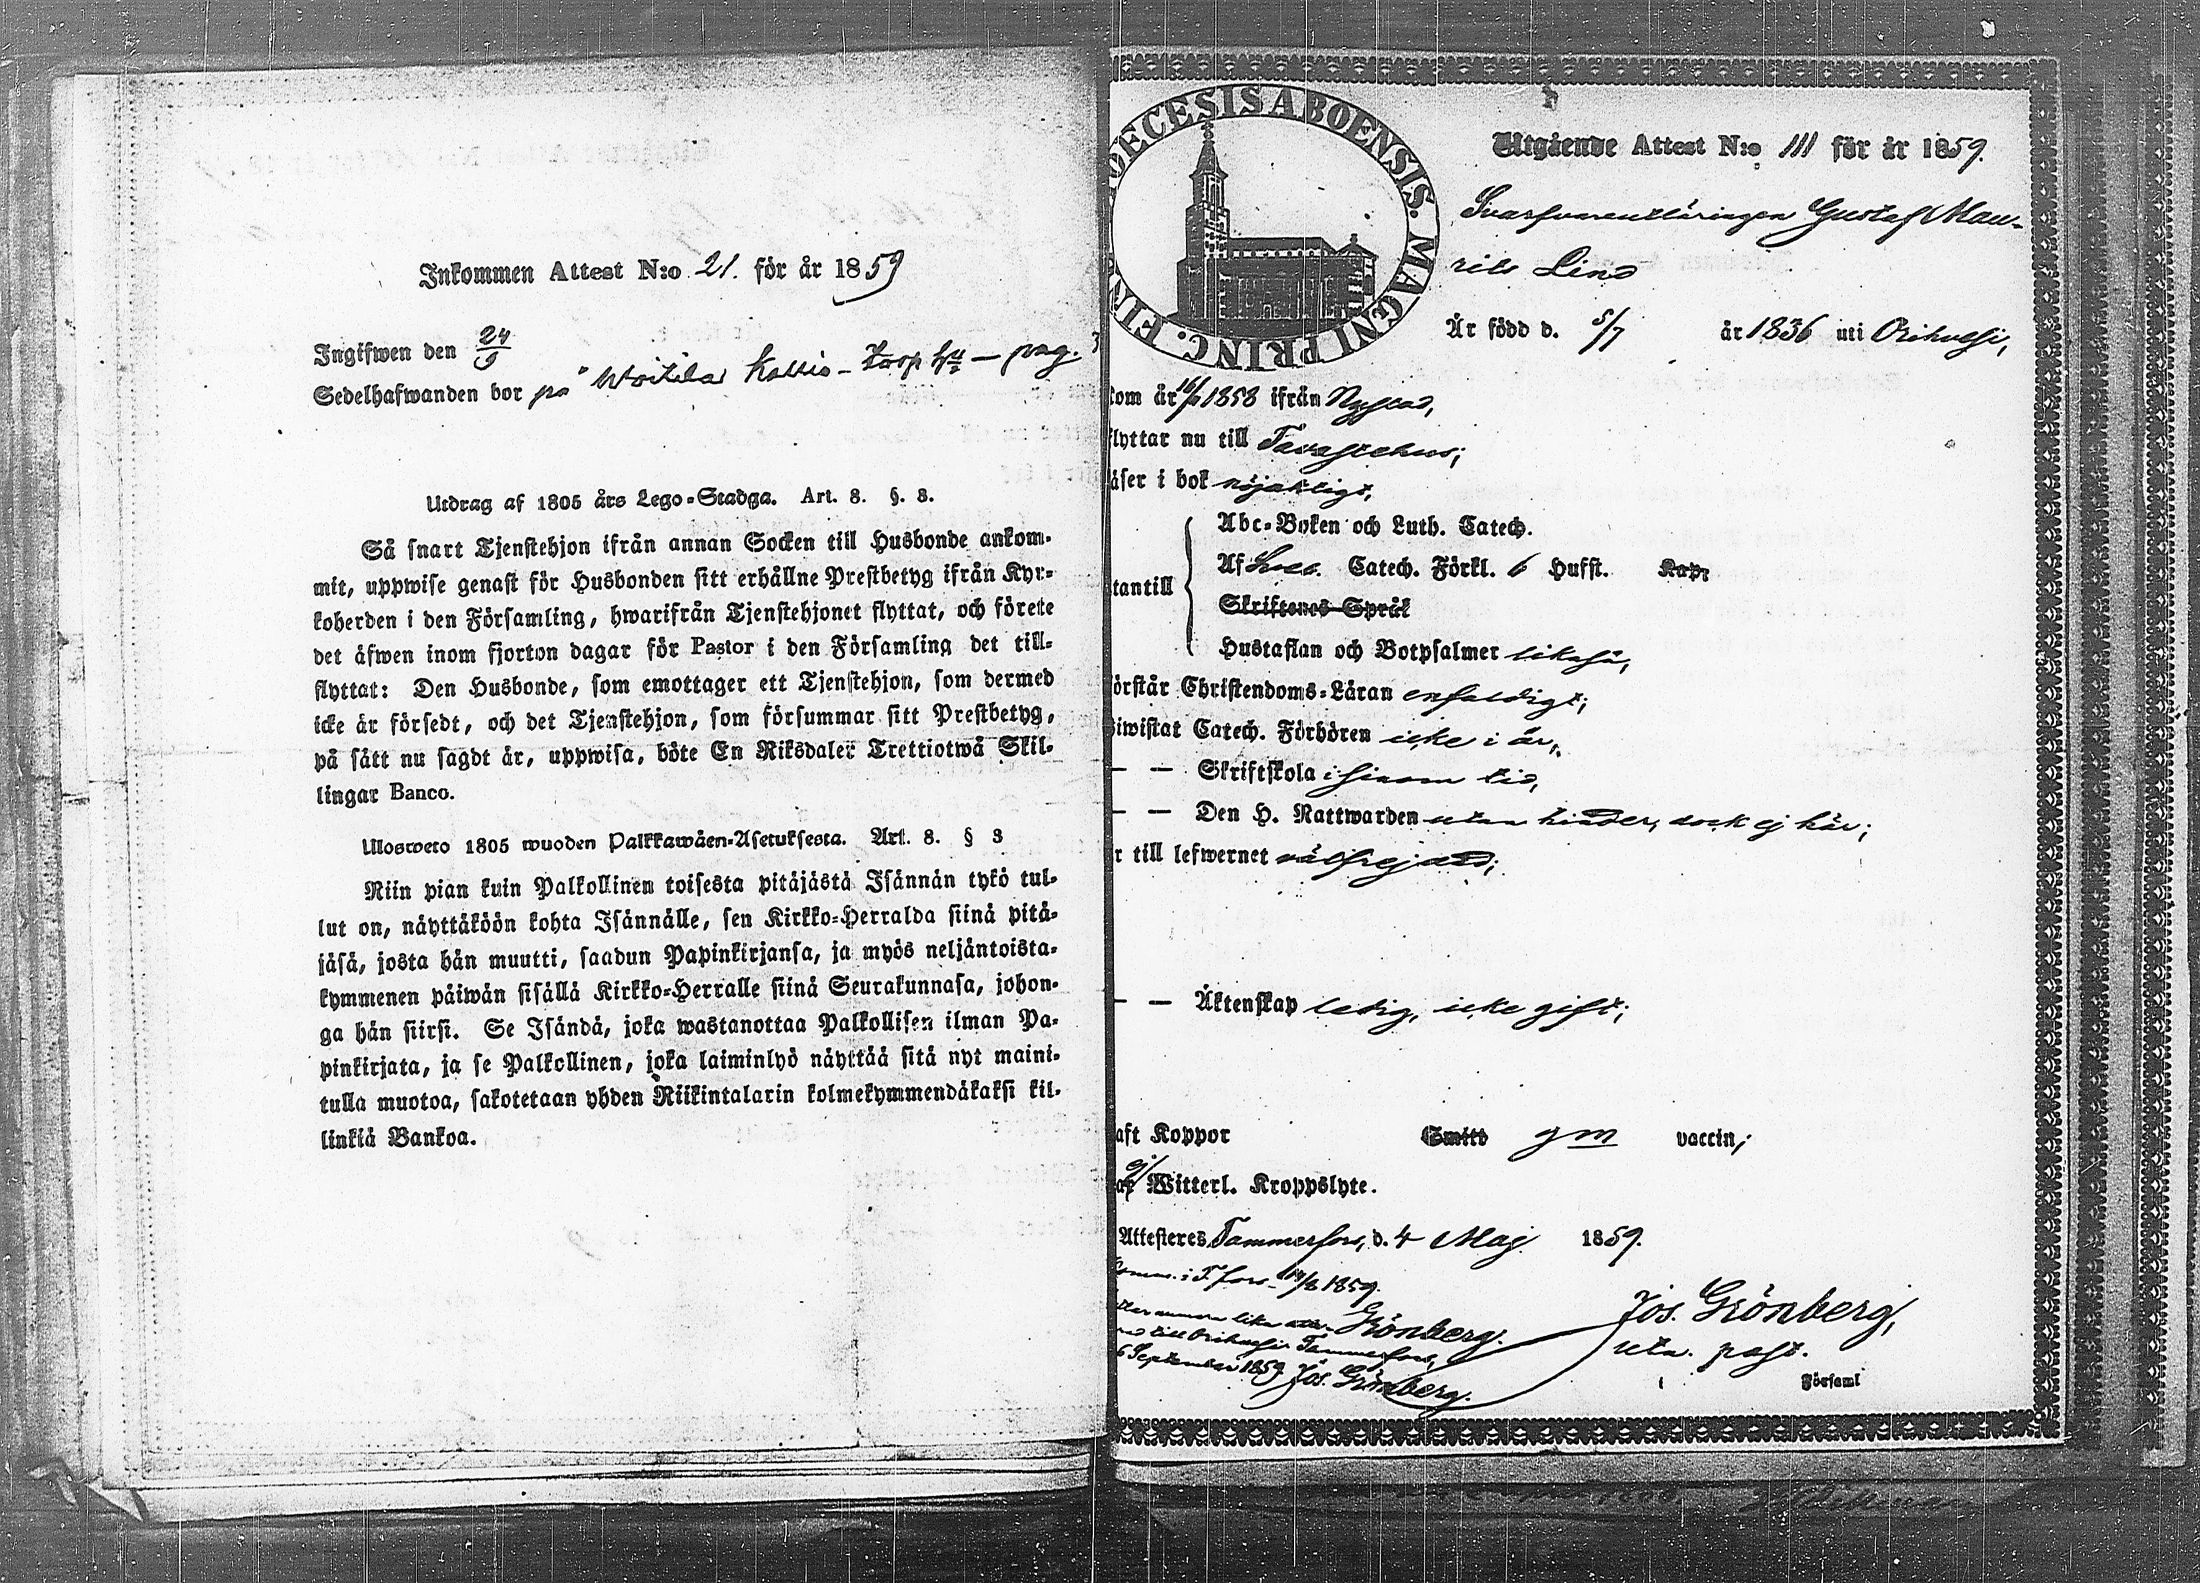 Inkommen Attest N:o 21. för år 1859
Ingifwen den 24/9
Sedelhafwanden bor på Woitila Kallis - Torp
Utdrag af 1805 års Lego-Stadga. Art. 8. §. 3.
Så snart Tjenstehjon ifrån annan Socken till Husbonde ankom-
mit, uppwise genast för Husbonden sitt erhållne Prestbetyg ifrån Kyr-
koherden i den Församling, hwarifrån Tjenstehjonet flyttat, och förete
det äfwen inom fjorton dagar för Pastor i den Församling det till-
flyttat: Den Husbonde, som emottager ett Tjenstehjon, som dermed
icke är försedt, och det Tjenstehjon, som försummar sitt Prestbetyg,
på sätt nu sagdt är, uppwisa, böte En Riksdaler Trettiotwå Skil-
lingar Banco.
Ulosweto 1805 wuoden Palkkawäen-Asetuksesta. Art. 8. § 3
Niin pian kuin Palkollinen toisesta pitäjästä Isännän tykö tul-
lut on, näyttäköön kohta Isännälle, sen Kirkko-Herralda siinä pitä-
jäsä, josta hän muutti, saadun Papinkirjansa, ja myös neljäntoista-
kymmenen päiwän sisällä Kirkko-Herralle siinä Seurakunnasa, johon-
ga hän siirsi. Se Isändä, joka wastanottaa Palkollisen ilman Pa-
pinkirjata, ja se Palkollinen, joka laiminlyö näyttää sitä nyt maini-
tulla muotoa, sakotetaan yhden Riikintalarin kolmekymmendäkaksi kil-
linkiä Bankoa.
DIOECESIS ABOENSIS. MAGNI PRINC. FIN
Utgående Attest N:o 111 för år 1859.
Svarfvarelärlingen Gustaf Mau-
rits Lind
Är född d. 5/7 år 1836 uti Orihvesi,
kom år 16/2 1858 ifrån Nystad,
flyttar nu till Tavastehus;
läser i bok nöjaktigt,
Abc-Boken och Luth. Catech.
Af Catech. Förkl. 6 Hufst. Kap.
utantill
Skriftenes Språk
Hustaflan och Botpsalmer likaså,
förstår Christendoms-Läran enfaldigt;
biwistat Catech. Förhören icke i år,
— — Skriftskola i sinom tid,
— — Den H. Nattwarden utan hinder, dock ej här;
r till lefwernet välfrejdad;
— — Äktenskap ledig, icke gift;
aft Koppor Smitt gm vaccin;
ej Witterl. Kroppslyte.
Attesteres Tammerfors, d. 4 Maj 1859.
i T.fors 1859.
Grönberg.
till Orihvesi Tammerfors,
6 September 1859. Jos. Grönberg.
Jos. Grönberg,
past.
Församl